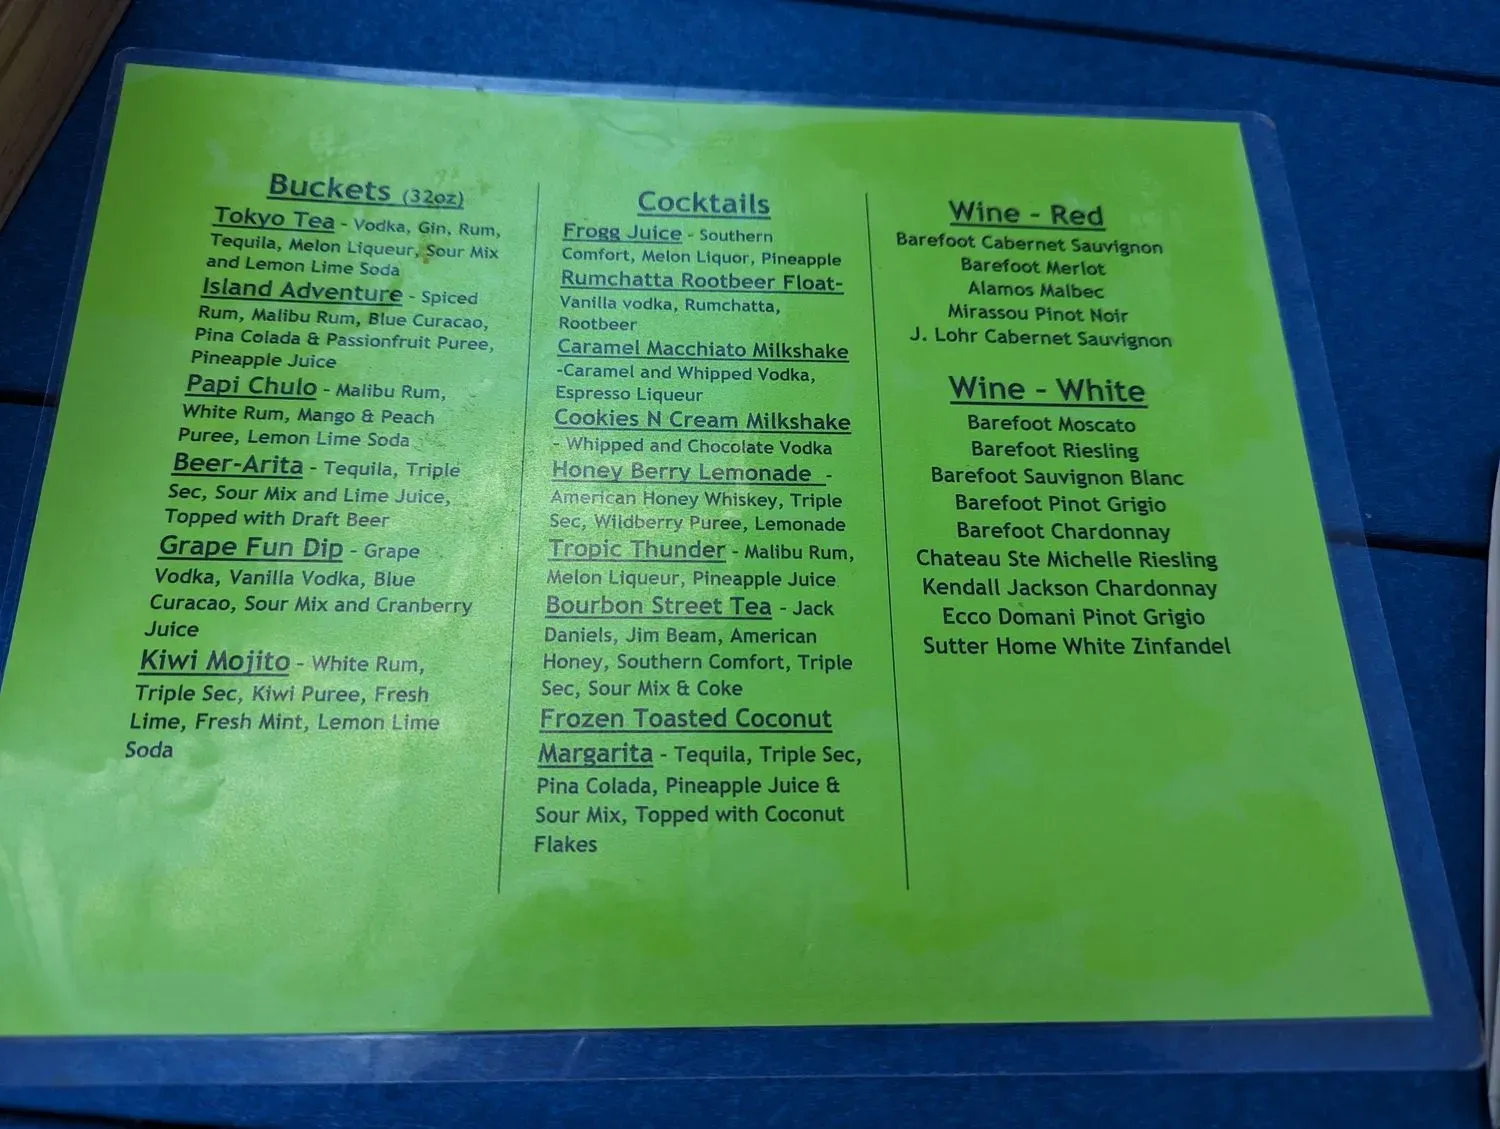 Buckets (32oz)
Tokyo Tea - Vodka, Gin, Rum,
Tequila, Melon Liqueur, Sour Mix
and Lemon Lime Soda
Island Adventure - Spiced
Rum, Malibu Rum, Blue Curacao,
Pina Colada & Passionfruit Puree,
Pineapple Juice
Papi Chulo - Malibu Rum,
White Rum, Mango & Peach
Puree, Lemon Lime Soda
Beer-Arita - Tequila, Triple
Sec, Sour Mix and Lime Juice,
Topped with Draft Beer
Grape Fun Dip - Grape
Vodka, Vanilla Vodka, Blue
Curacao, Sour Mix and Cranberry
Juice
Kiwi Mojito - White Rum,
Triple Sec, Kiwi Puree, Fresh
Lime, Fresh Mint, Lemon Lime
Soda
Cocktails
Frogg Juice - Southern
Comfort, Melon Liquor, Pineapple
Rumchatta Rootbeer Float-
Vanilla vodka, Rumchatta,
Rootbeer
Caramel Macchiato Milkshake
-Caramel and Whipped Vodka,
Espresso Liqueur
Cookies N Cream Milkshake
- Whipped and Chocolate Vodka
Honey Berry Lemonade -
American Honey Whiskey, Triple
Sec, Wildberry Puree, Lemonade
Tropic Thunder - Malibu Rum,
Melon Liqueur, Pineapple Juice
Bourbon Street Tea - Jack
Daniels, Jim Beam, American
Honey, Southern Comfort, Triple
Sec, Sour Mix & Coke
Frozen Toasted Coconut
Margarita - Tequila, Triple Sec,
Pina Colada, Pineapple Juice &
Sour Mix, Topped with Coconut
Flakes
Wine - Red
Barefoot Cabernet Sauvignon
Barefoot Merlot
Alamos Malbec
Mirassou Pinot Noir
J. Lohr Cabernet Sauvignon
Wine - White
Barefoot Moscato
Barefoot Riesling
Barefoot Sauvignon Blanc
Barefoot Pinot Grigio
Barefoot Chardonnay
Chateau Ste Michelle Riesling
Kendall Jackson Chardonnay
Ecco Domani Pinot Grigio
Sutter Home White Zinfandel